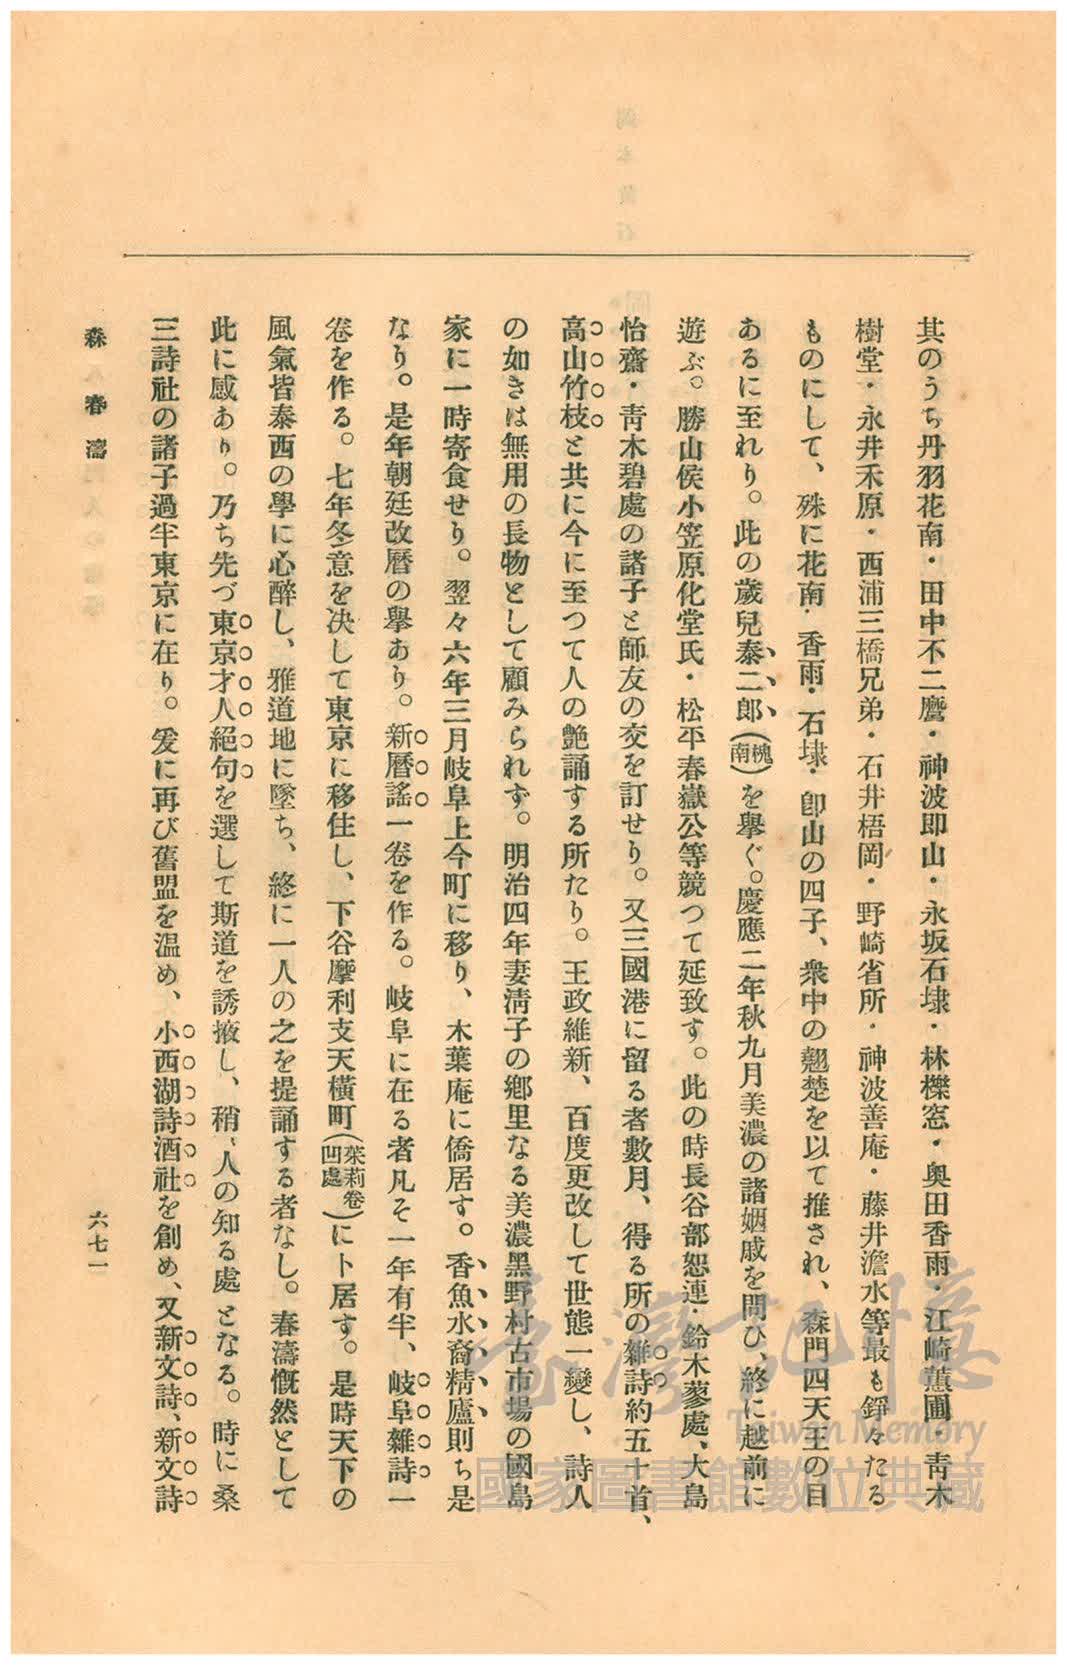 其のうち丹羽花南・田中不二麿・神波即山・永坂石埭・林櫟窓・奥田香雨・江崎薫圃・靑木
樹堂・永井禾原・西浦三橋兄弟・石井梧岡・野崎省所・神波善庵・藤井澹水等最も錚々たる
ものにして、殊に花南・香雨・石埭・卽山の四子、衆中の翹楚を以て推され、森門四天王の目
あるに至れり。此の歲兒泰二郎(槐南)を擧ぐ。慶應二年秋九月美濃の諸姻戚を問ひ、終に越前に
遊ぶ。勝山侯小笠原化堂氏・松平春嶽公等競つて延致す。此の時長谷部恕連・鈴木蓼處、大島
怡齋・靑木碧處の諸子と師友の交を訂せり。又三國港に留る者數月、得る所の雜詩約五十首、
高山竹枝と共に今に至つて人の艷誦する所たり。王政維新、百度更改して世態一變し、詩人
の如きは無用の長物として顧みられず。明治四年妻淸子の鄕里なる美濃黑野村古市場の國島
家に一時寄食せり。翌々六年三月岐阜上今町に移り、木葉庵に僑居す。香魚水裔精廬則ち是
なり。是年朝廷改曆の擧あり。新曆謠一卷を作る。岐阜に在る者凡そ一年有半、岐阜雜詩一
卷を作る。七年冬意を决して東京に移住し、下谷摩利支天橫町(茱莉卷凹處)に卜居す。是時天下の
風氣皆泰西の學に心醉し、雅道地に墜ち、終に一人の之を提誦する者なし。春濤慨然として
此に感あり。乃ち先づ東京才人絕句を選して斯道を誘掖し、稍〻人の知る處となる。時に桑
三詩社の諸子過半東京に在り。爰に再び舊盟を温め、小西湖詩酒社を創め、又新文詩、新文詩
森春濤
六七一
臺灣記憶
Taiwan Memory
國家圖書館數位典藏